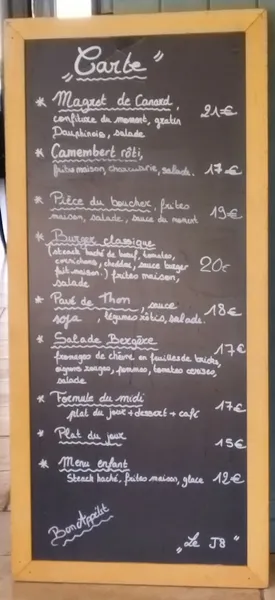 "Carte"
* Magret de Canard,
confiture du moment, gratin 21€
Dauphinois, salade
* Camembert rôti,
frites maison, charcuterie, salade. 17€
* Pièce du boucher, frites
maison, salade, sauce du moment 19€
* Burger classique
(steack haché de bœuf, tomates,
cornichons, cheddar, sauce burger 20€
fait maison.) frites maison,
salade
* Pavé de Thon, sauce 18€
soja, légumes rôtis, salade.
* Salade Bergère 17€
fromages de chèvre en feuilles de bricks,
oignons rouges, pommes, tomates cerises,
salade
* Formule du midi 17€
plat du jour + dessert + café
* Plat du jour 15€
* Menu enfant
Steack haché, frites maison, glace 12€
Bon Appétit
"Le J8"